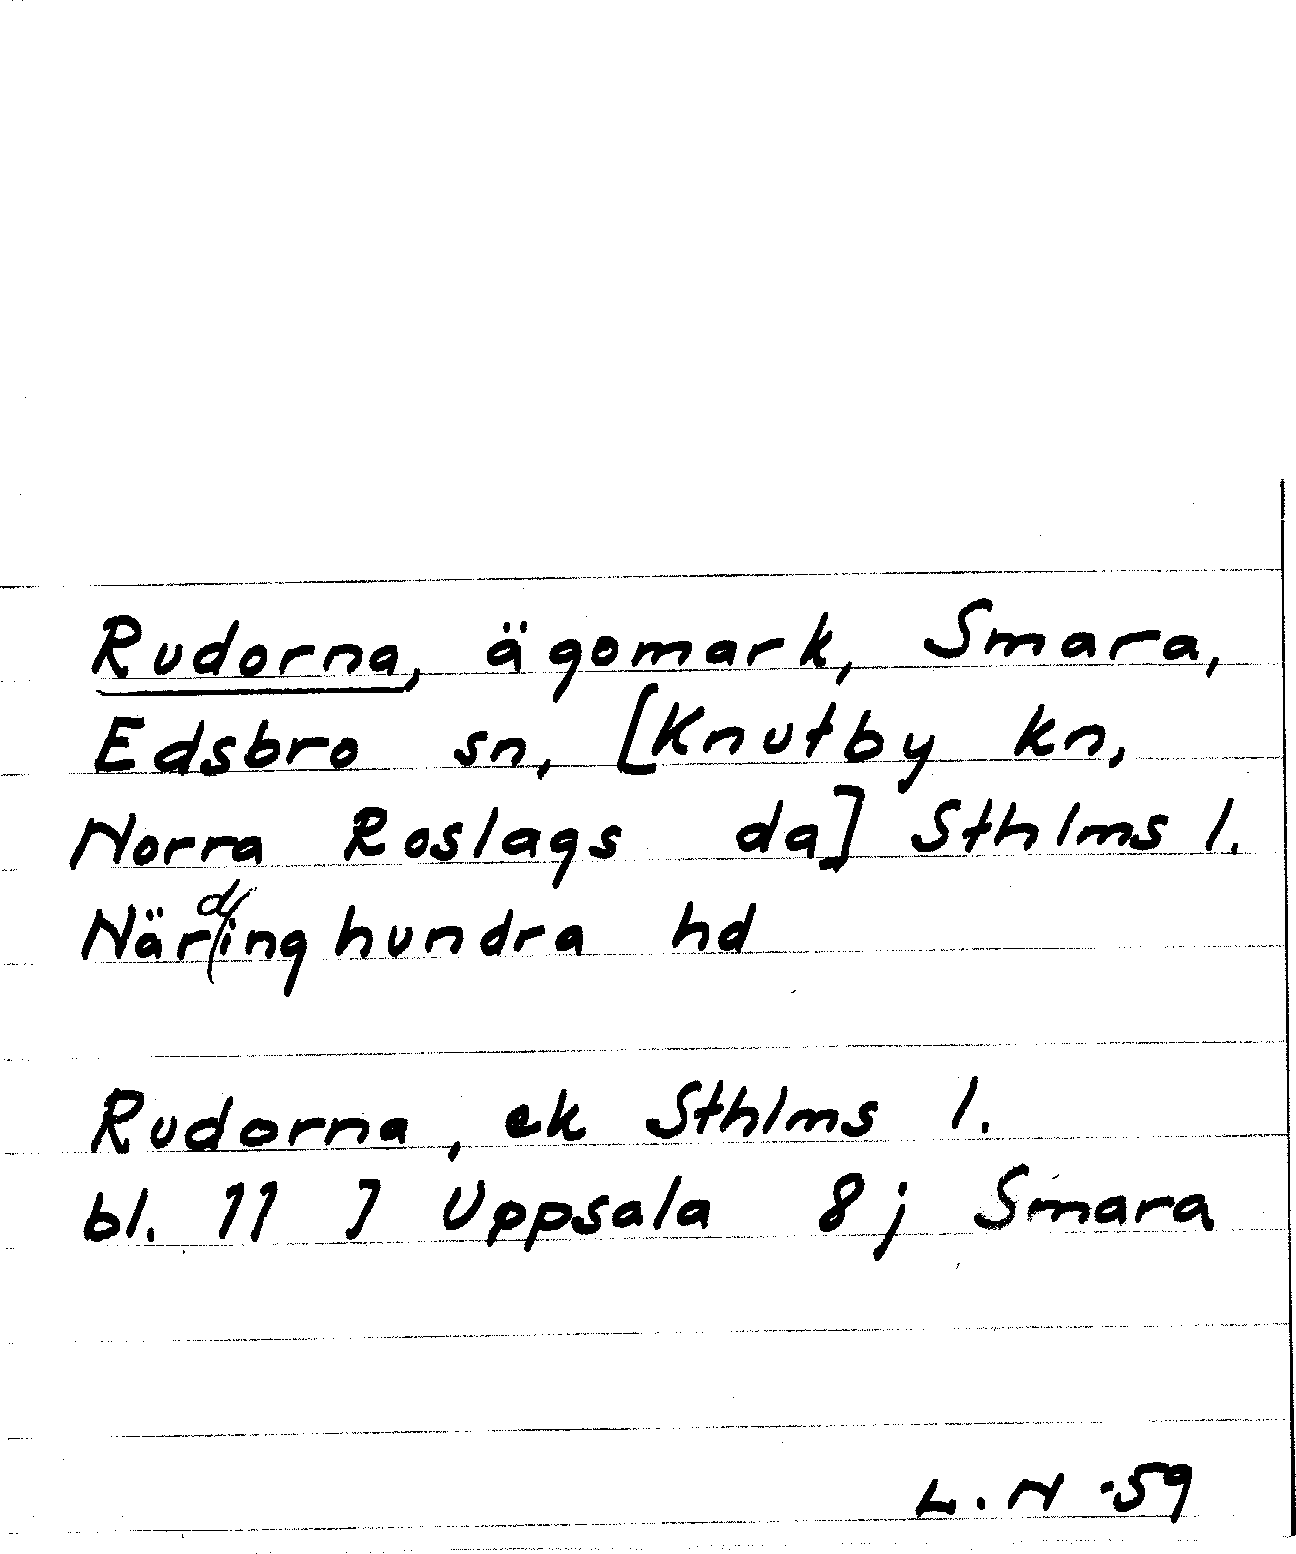 Rudorna, ägomark, Smara,
Edsbro sn, [Knutby kn,
Norra Roslags da] Sthlms l.
Närdinghundra hd
Rudorna, ek Sthlms l.
bl. 11 J Uppsala 8j Smara
L.N -59